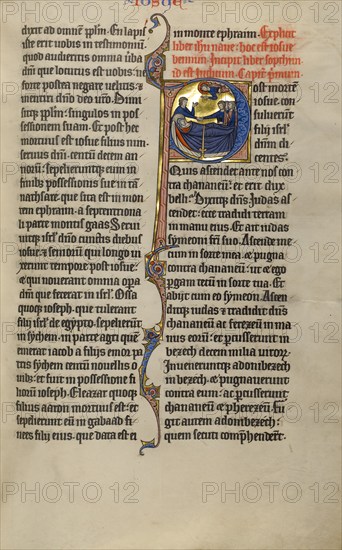 iosue
dixit ad omnem pplm. En lapis
iste erit vobis in testimonium
quod audieritis omnia uba
dni que locutus est vobis: ne
forte postea negare velitis: et
mentiri dno deo uro. Dimi
sitque pplm: singulos in pos
sessionem suam. Et post hec
mortuus est iosue filius nun
seruus dni: centum decem an
norum: sepelieruntque eum in
finibus possessionis sue in ta
nathsare: que sita est in mon
te ephraim: a septentriona
li parte montis gaas. Serui
uitque isrl dno cunctis diebus
iosue: et seniorum qui longo ui
xerunt tempore post iosue:
et qui nouerant omnia opera
dni que fecerat in isrl. Ossa
quoque ioseph: que tulerant
filii isrl de egypto: sepelierunt
in sychem: in parte agri quem
emerat iacob a filiis emor pa
tris sychem centum nouellis o
uibus: et fuit in possessione fi
liorum ioseph. Eleazar quoque
filius aaron mortuus est: et
sepelierunt eum in gabaad fi
nees filii eius: que data est ei
in monte ephraim. Explicit
liber ihu naue: hoc est iosue
Incipit liber sophtim
id est iudicum. Captm primum
Post mortem
iosue con
suluerunt
filii isrl
dnm di
centes.
Quis ascendet ante nos con
tra chananeum: et erit dux
belli. Dixitque dns. Iudas as
cendet: ecce tradidi terram
in manus eius. Et ait iudas
symeoni fratri suo. Ascende mecum
in sorte mea et pugna
contra chananeum: ut et ego
pergam tecum in sorte tua. Et
abijt cum eo symeon. Ascen
ditque iudas et tradidit dns
chananeum ac ferezeum in ma
nus eorum: et percusserunt in
bezech decem milia virorum.
Inueneruntque adonibezech
in bezech: et pugnauerunt
contra eum: ac percusserunt
chananeum et pherezeum. Fu
git autem adonibezech:
quem secuti comprehenderunt